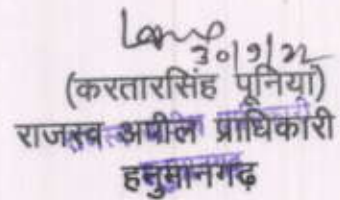 30/9/22
(करतारसिंह पूनियां)
राजस्व अपील प्राधिकारी
हनुमानगढ़